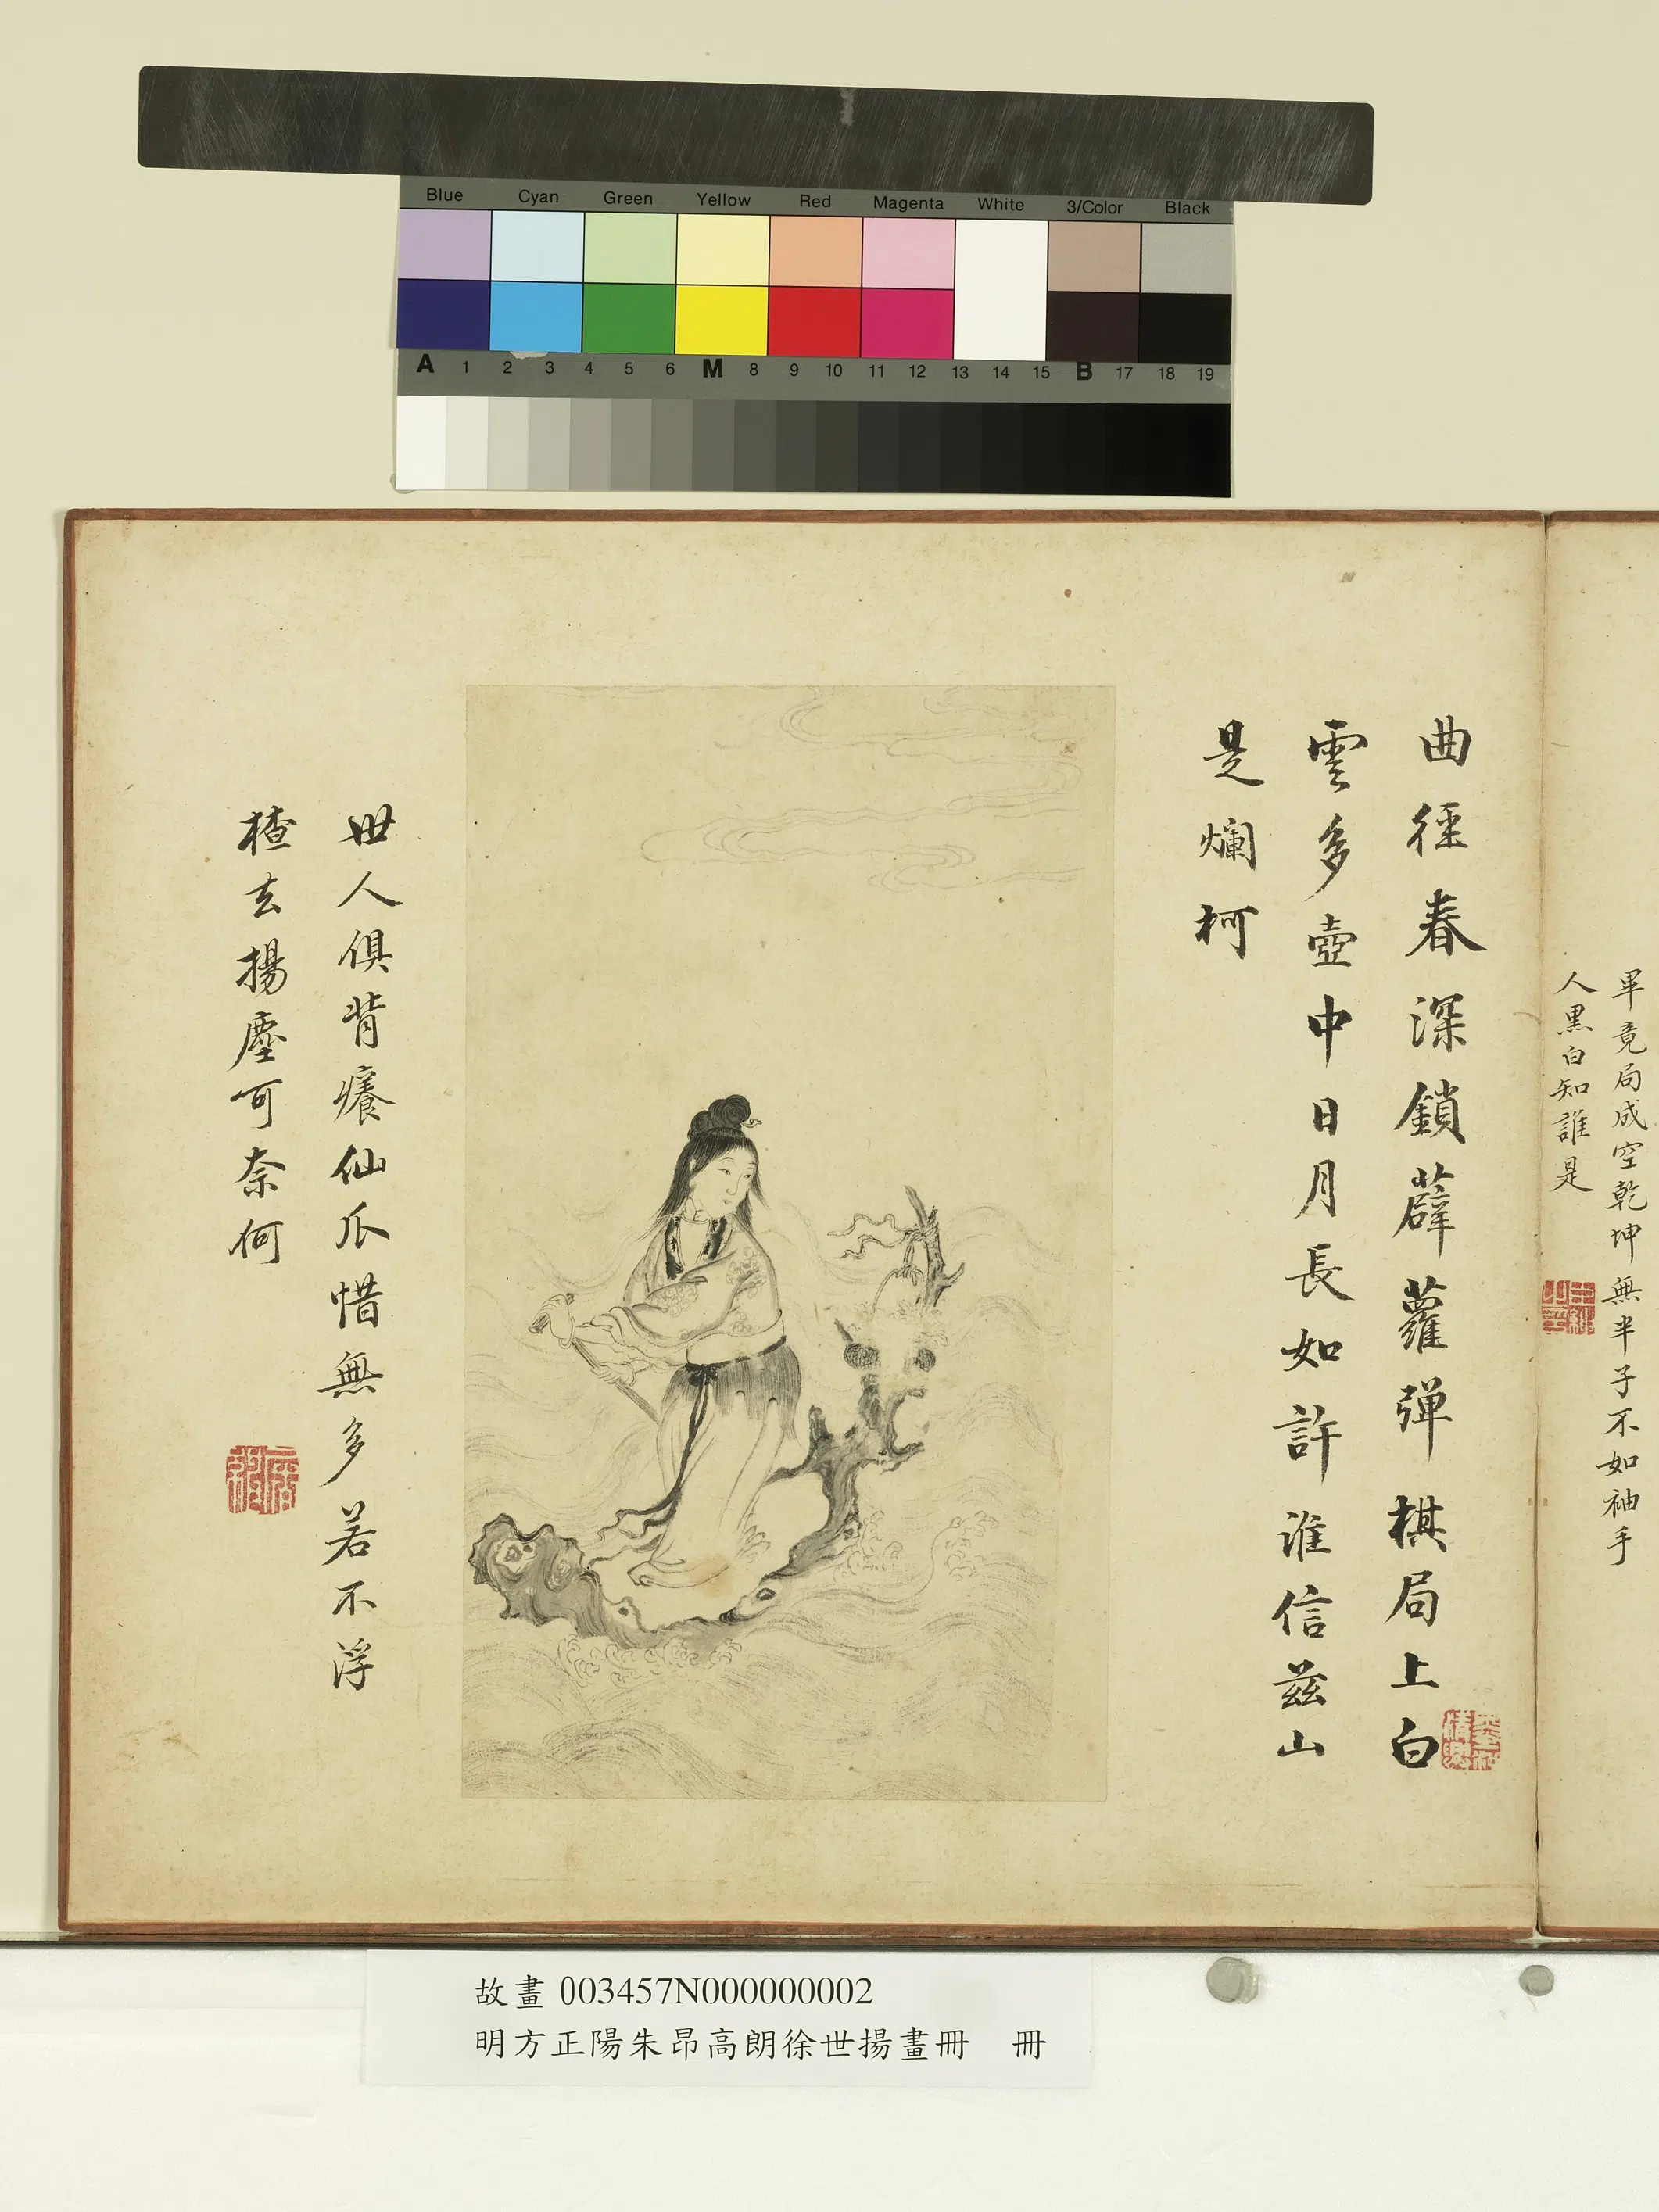 Blue Cyan Green Yellow Red Magenta White 3/Color Black
A 1 2 3 4 5 6 M 8 9 10 11 12 13 14 15 B 17 18 19
畢竟局成空乾坤無半子不如袖手
人黑白知誰是
曲徑春深鎖薜蘿彈棋局上白
雲多壺中日月長如許誰信茲山
是爛柯
世人俱背癢仙爪惜無多若不浮
楂去揚塵可奈何
故畫 003457N000000002
明方正陽朱昂高朗徐世揚畫冊 冊